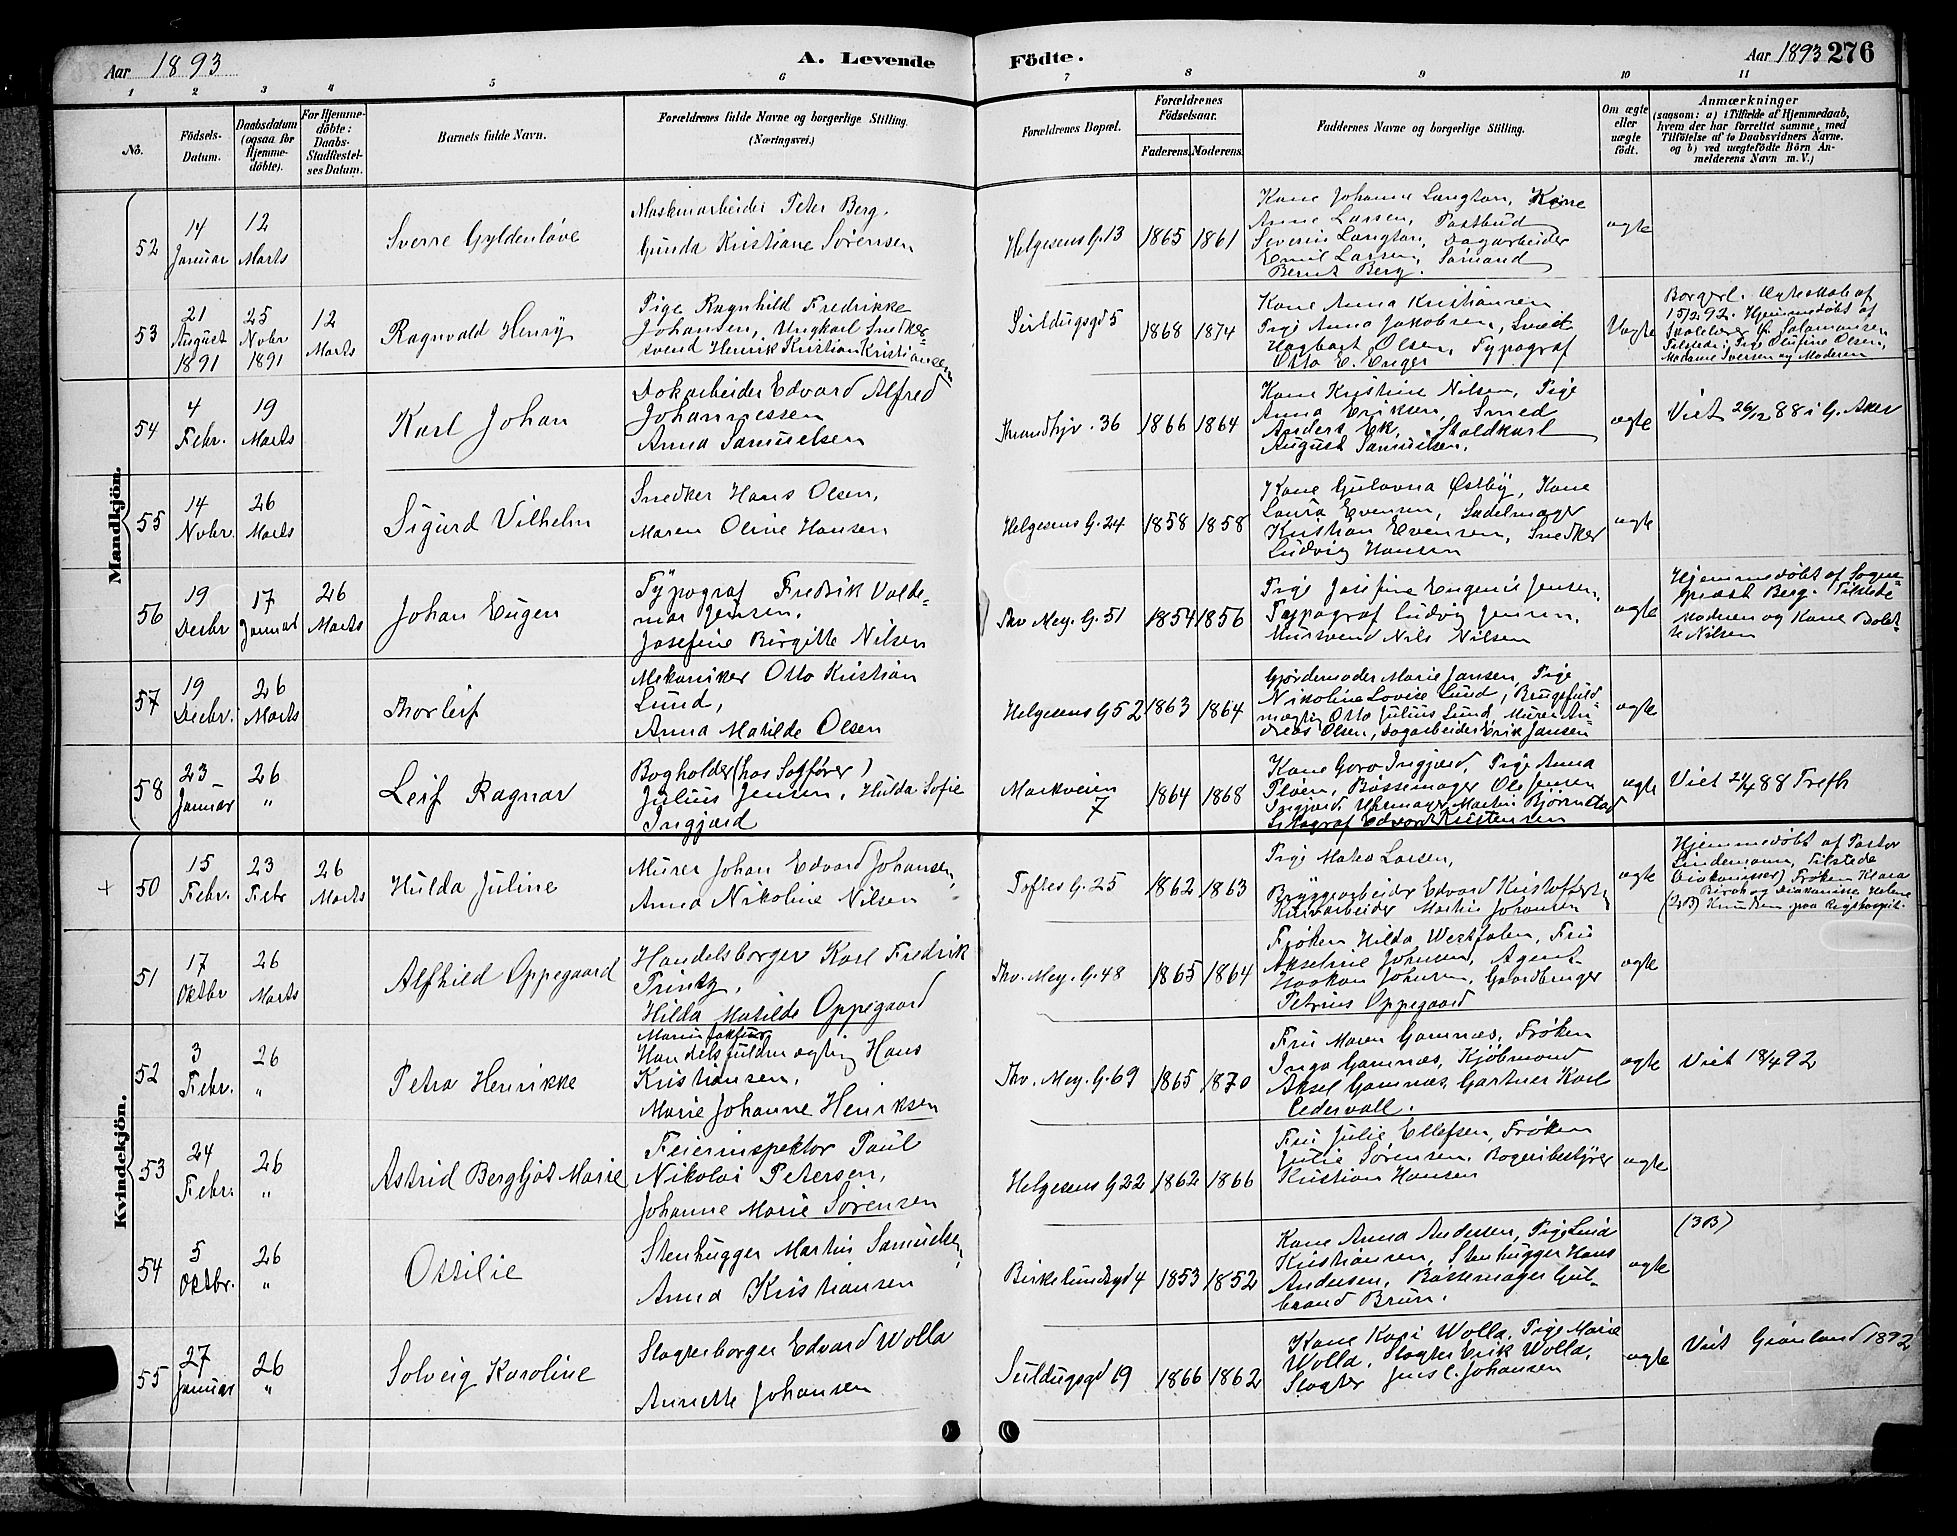 Aar 1893
A. Levende Födte.
Aar 1893 276
1 2 3 4 5 6 7 8 9 10 11
No.
Födsels-
Datum.
Daabsdatum
(ogsaa for
Hjemme-
döbte).
For Hjemme-
döbte:
Daabs-
Stadfæstel-
ses Datum.
Barnets fulde Navn.
Forældrenes fulde Navne og borgerlige Stilling.
(Næringsvei.)
Forældrenes Bopæl.
Forældrenes
Födselsaar.
Faderens. Moderens.
Faddernes Navne og borgerlige Stilling.
Om ægte
eller
uægte
födt.
Anmærkninger
(saasom: a) i Tilfælde af Hjemmedaab,
hvem der har forrettet samme, med
Tilföielse af to Daabsvidners Navne.
og b) ved uægtefödte Börn An-
melderens Navn m.V.)
Mandkjön.
52
14
Januar
12
Marts
Sverre Gyldenløve
Maskinarbeider Peter Berg.
Gunda Kristiane Sörensen
Helgesens G. 13
1865 1861
Kone Johanne Langton, Kone
Anne Larsen, Postbud
Severin Langton, Dagarbeider
Emil Larsen, Sömand
Bernt Berg.
ægte
53
21
August
1891
25
Novbr
1891
12
Marts
Ragnvald Henry
Pige Ragnhild Fredrikke
Johansen, Ungkarl Snedker
svend Henrik Kristian Kristiansen
Seildugsgd 5
1868 1874
Kone Anna Kristiansen
Pige Anna Jakobsen, Smed
Hagbart Olsen, Typograf
Otto E. Enger
Uægte
Borgerl. Ægteskab af
15/2 92. Hjemmedøbt af
Skolelærer Salamonsen
Tilstede: Pige Olufine Olsen,
Madame Iversen og Moderen
54
4
Febr.
19
Marts
Karl Johan
Dokarbeider Edvard Alfred
Johannessen
Anna Samuelsen
Trondhjv. 36
1866 1864
Kone Kristine Nilsen, Pige
Anna Eriksen, Smed
Anders Ek, Staldkarl
August Samuelsen.
ægte
Viet 26/12 88 i G. Aker
55
14
Novbr.
26
Marts
Sigurd Vilhelm
Snedker Hans Olsen,
Maren Oline Hansen
Helgesens G. 24
1858 1858
Kone Gustava Østby, Kone
Laura Evensen, Sadelmager
Kristian Evensen, Snedker
Ludvig Hansen
ægte
56
19
Decbr
17
Januar
26
Marts
Johan Eugen
Typograf Fredrik Valde-
mar Jensen,
Josefine Birgitte Nilsen
Thv. Mey. G. 51
1854 1856
Pige Josefine Eugenie Jensen,
Typograf Ludvig Jensen,
Mursvend Nils Nilsen
ægte
Hjemmedøbt af Sogne-
præst Berg. Tilstede
Moderen og Kone Bolet-
te Nilsen
57
19
Decbr.
26
Marts
Thorleif
Mekaniker Otto Kristian
Lund,
Anna Matilde Olsen
Helgesens G 52
1863 1864
Gjordemoder Marie Jansen, Pige
Nikoline Lovise Lund, Brugsfuld-
mægtig Otto Julius Lund, Murer An-
dreas Olsen, Dagarbeider Erik Jansen
ægte
58
23
Januar
26
"
Leif Ragnar
Bogholder (hos Sagfører)
Julius Jensen, Hulda Sofie
Ingjærd
Markveien
7
1864 1868
Kone Goro Ingjærd, Pige Anna
Pløen, Bøssemager Ole Jensen
Ingjærd, Uhrmager Martin Bjørnstad
Litograf Edvard Kristensen
ægte
Viet 24/4 88 Trefh
Kvindekjön.
+
50
15
Febr.
23
Febr
26
Marts
Hulda Juline
Murer Johan Edvard Johansen,
Anna Nikoline Nilsen
Toftes G. 25
1862 1863
Pige Matea Larsen,
Bryggearbeider Edvard Kristoffersen
Martin Johansen
ægte
Hjemmedøbt af Pastor
Lindemann, Tilstede
(Diakonisser) Frøken Klara
og Diakonisse Helene
(2B) Knudsen paa Rigshospit.
51
17
Oktbr
26
Marts
Alfhild Oppegaard
Handelsborger Karl Fredrik
Printz,
Hilda Matilde Oppegaard
Thv. Mey. G. 48
1865 1864
Frøken Hilda Westfalen, Fru
Akseline Johnsen, Agent
Haakon Johnsen, Gaardbruger
Petrius Oppegaard
ægte
52
3
Febr.
26
"
Petra Henrikke
Handelsfuldmægtig Hans
Kristiansen,
Marie Johanne Henriksen
Thv. Mey. G. 69
1865 1870
Fru Maren Gamnæs, Frøken
Inga Gamnæs, Kjøbmand
Aksel Gamnæs, Gartner Karl
Cedervall.
ægte
Viet 18/4 92
53
24
Febr.
26
"
Astrid Bergljot Marie
Feierinspektor Paul
Nikolai Petersen,
Johanne Marie Sørensen
Helgesens G 22
1862 1866
Fru Julie Ellefsen, Frøken
Julie Sørensen, Bageribestyrer
Kristian Hansen
ægte
54
5
Oktbr.
26
"
Ottilie
Stenhugger Martin Samuelsen,
Anna Kristiansen
Birkelundsgd 4
1853 1852
Kone Anna Andersen, Pige
Kristiansen, Stenhugger Hans
Andersen, Bøssemager Gul-
brand Brun.
ægte
(3B)
55
27
Januar
26
"
Solveig Karoline
Slagterborger Edvard Wolla
Annette Johansen
Seildugsgd 19
1866 1862
Kone Kari Wolla, Pige Marie
Wolla, Slagter Erik Wolla,
Slagter Jens C. Johansen
ægte
Viet Grønland 1892